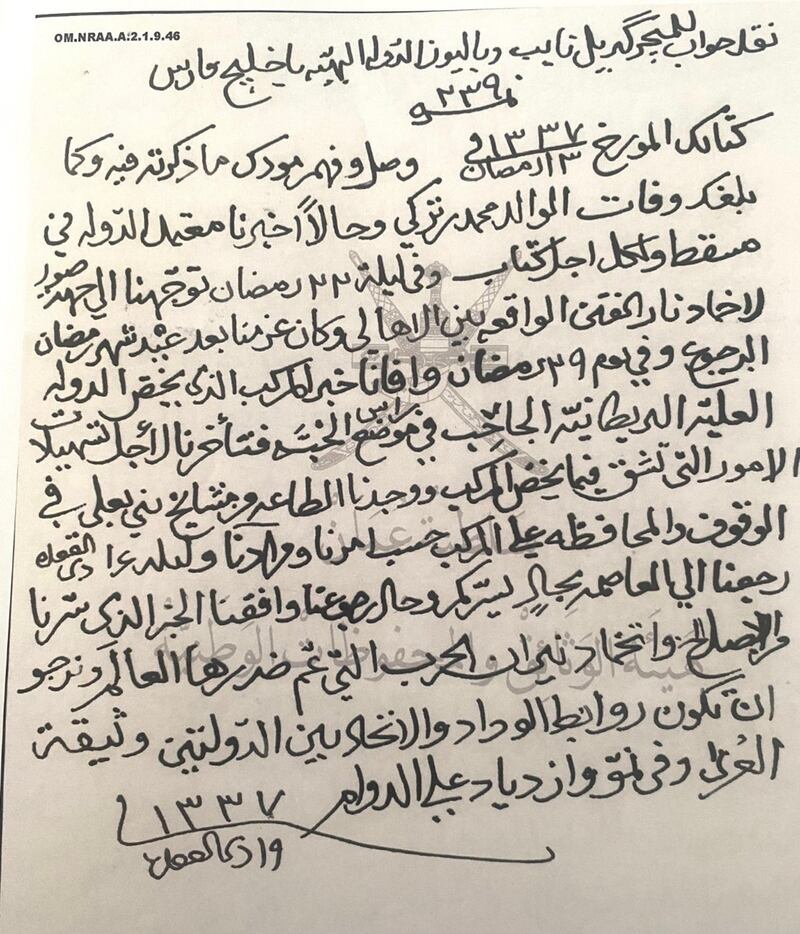 OM.NRAA.A:2.1.9.46
نقل جواب للميجر گبريل نايب وباليوز الدوله البهيه با خليج فارس
نمـ ٢٣٩ ـره
كتابك المورخ في ١٣ رمضان ١٣٣٧ وصل وفهم مودك ما ذكرته فيه وكما
بلغك وفات الوالد محمد بن تركي وحالاً اخبرنا معتمد الدوله في
مسقط ولكل اجل كتاب وفي ليلة ٢٢ رمضان توجهنا الى جهة صور
لاخماد نار الفتن الواقعه بين الاهالي وكان عزمنا بعد عيد شهر رمضان
الرجوع وفي يوم ٢٩ رمضان وافانا خبر المركب الذي يخص الدوله
العليه البريطانيه الجانب في موضع راس الخبه فتأخرنا لأجل تسهيلات
الامور التي تشق فيما يخص المركب ووجدنا الطاعه من مشايخ بني بوعلي في
الوقوف والمحافظه على المركب حسب امرنا ومرادنا وليلة غرة ذي القعدة
رجعنا الي العاصمه بحال يسركم وحال رجوعنا وافقنا الخبر الذي سرنا
من الصلح وانخماد نيران الحرب التي عم ضررها العالم ونرجو
ان تكون روابط الوداد والاتحاد بين الدولتين وثيقة
العرى وفي نمو وازدياد على الدوام
١٣٣٧
ذي القعدة